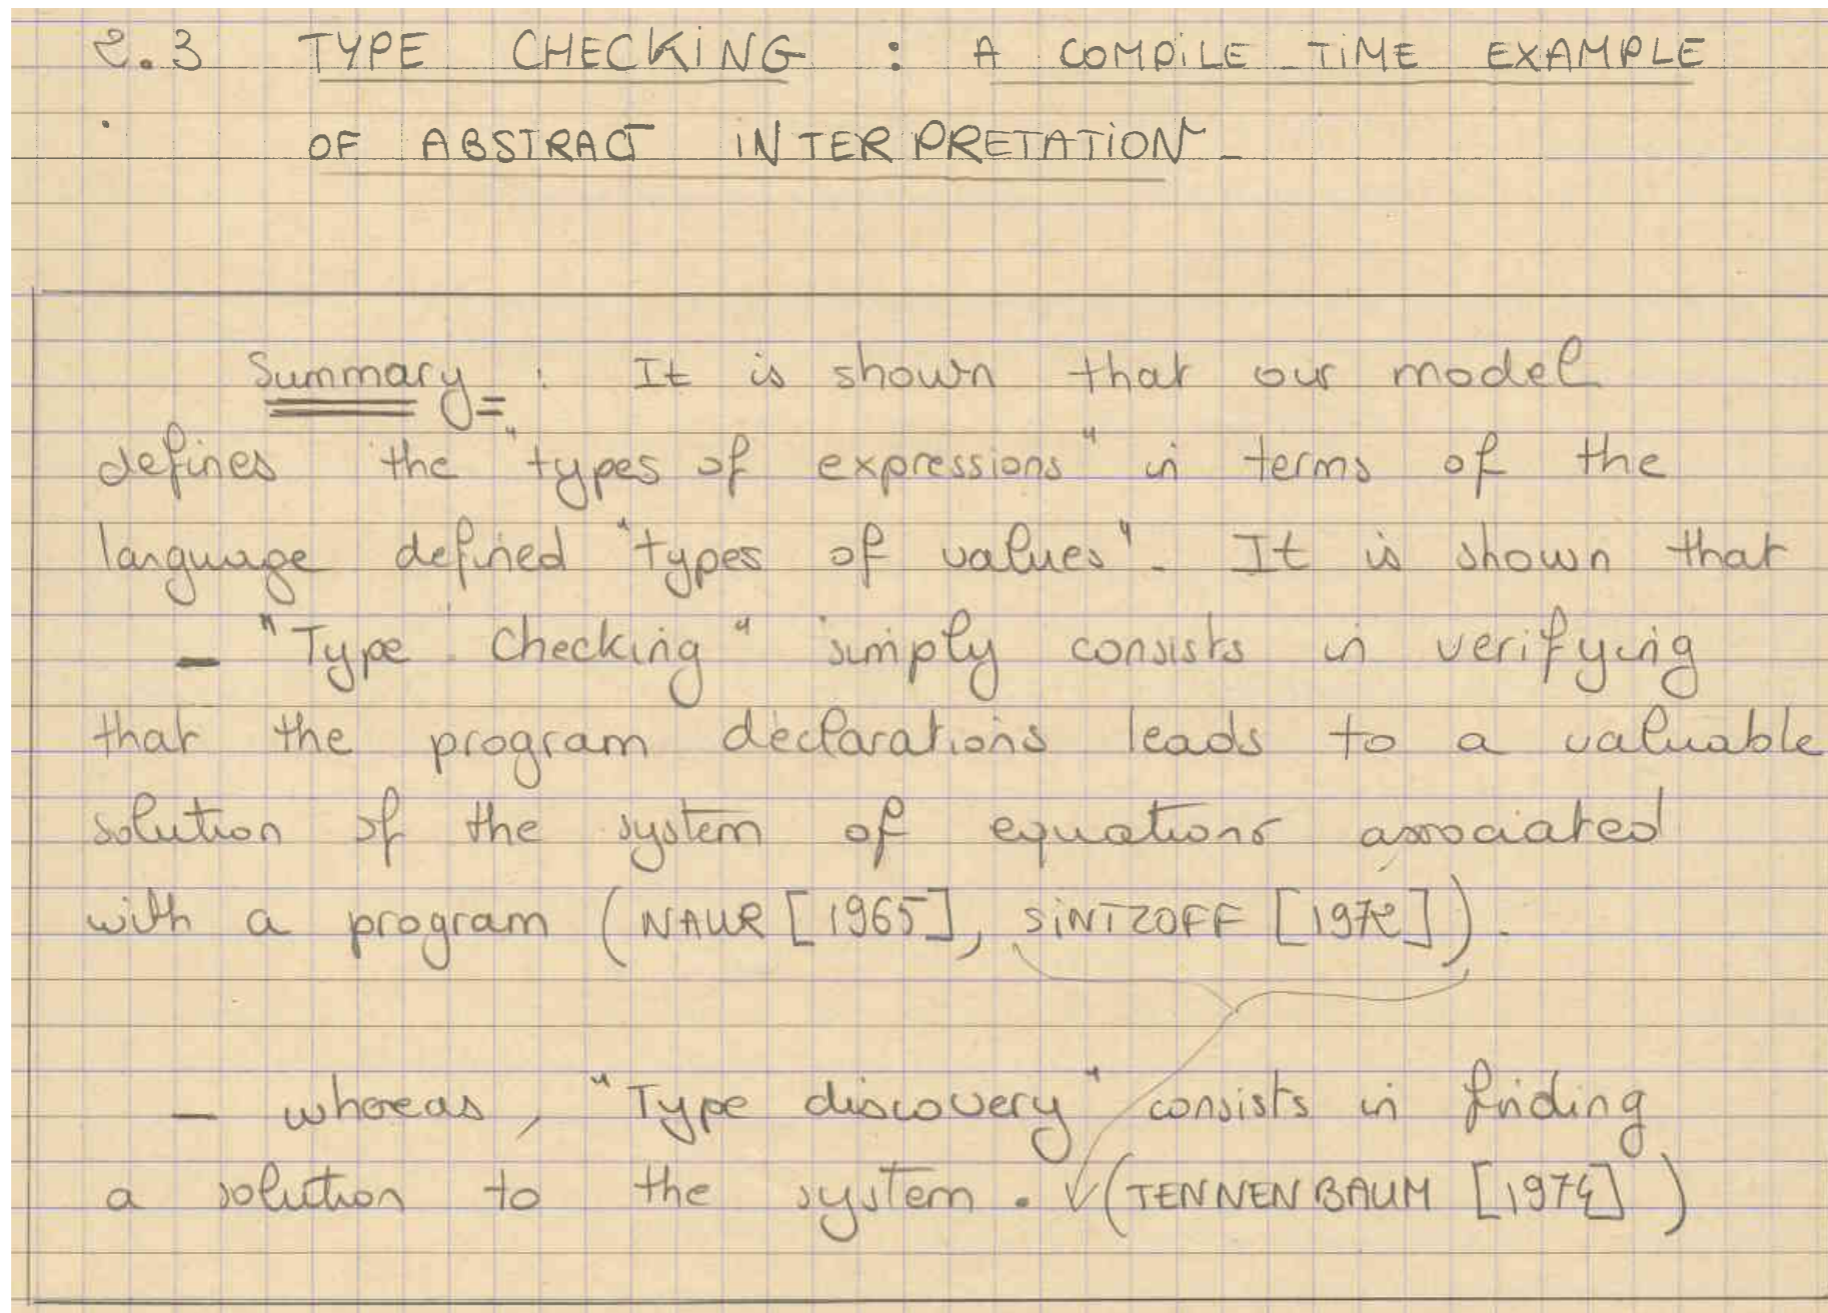 2.3 TYPE CHECKING : A COMPILE TIME EXAMPLE
OF ABSTRACT INTERPRETATION -
Summary : It is shown that our model
defines the "types of expressions" in terms of the
language defined "types of values". It is shown that
- "Type checking" simply consists in verifying
that the program declarations leads to a valuable
solution of the system of equations associated
with a program (NAUR [1965], SINTZOFF [1972]).
- whereas, "Type discovery" consists in finding
a solution to the system. (TENNENBAUM [1974])